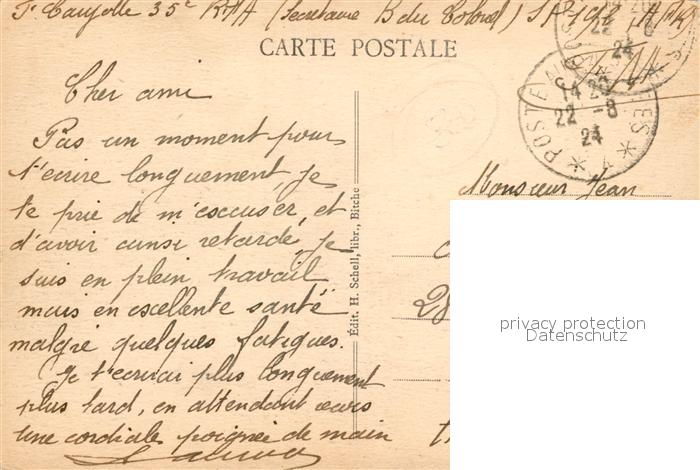 35e
CARTE POSTALE
Cher ami
Pas un moment pour
t'écrire longuement, je
te prie de m'excuser, et
d'avoir aussi retardé, je
suis en plein travail
mais en excellente santé
malgré quelques fatigues.
Je t'écrirai plus longuement
plus tard, en attendant
une cordiale poignée de main
Édit. H. Schell, libr., Bitche
POSTE
14
22 -8
24
22 8
24
Monsieur Jean
28
privacy protection
Datenschutz